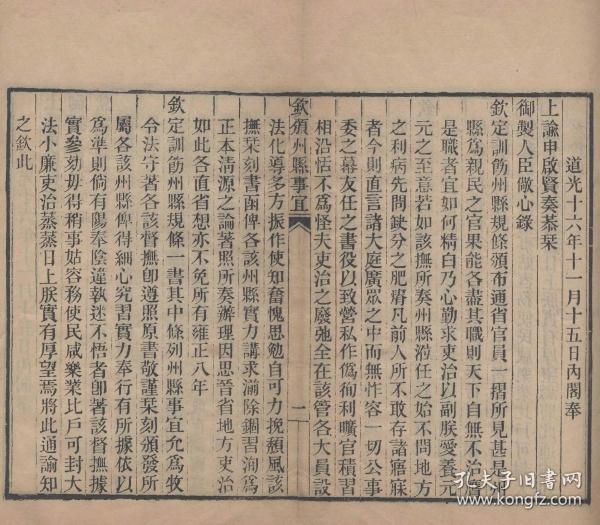 道光十六年十一月十五日內閣奉
上諭申啟賢奏恭栞
御製人臣儆心錄
欽定訓飭州縣規條頒布通省官員一摺所見甚是州
縣爲親民之官果能各盡其職則天下自無不治居
是職者宜如何精白乃心勤求吏治以副朕愛養元
元之至意若如該撫所奏州縣涖任之始不問地方
之利病先問缺分之肥瘠凡前人所不敢存諸寤寐
者今則直言諸大庭廣眾之中而無怍容一切公事
委之幕友任之書役以致營私作僞徇利曠官積習
相沿恬不爲怪夫吏治之廢弛全在該管各大員設
欽頒州縣事宜
一
法化導多方振作使知奮愧思勉自可力挽頹風該
撫栞刻書函俾各該州縣實力講求湔除錮習洵爲
正本清源之論著照所奏辦理因思晉省地方吏治
如此各直省想亦不免所有雍正八年
欽定訓飭州縣規條一書其中條列州縣事宜允爲牧
令法守著各該督撫卽遵照原書敬謹栞刻頒發所
屬各該州縣俾得細心究習實力奉行有所據依以
爲準則倘有陽奉陰違執迷不悟者卽著該督撫據
實參劾毋得稍事姑容務使民咸樂業比戶可封大
法小廉吏治蒸蒸日上朕實有厚望焉將此通諭知
之欽此
孔夫子旧书网
www.kongfz.com